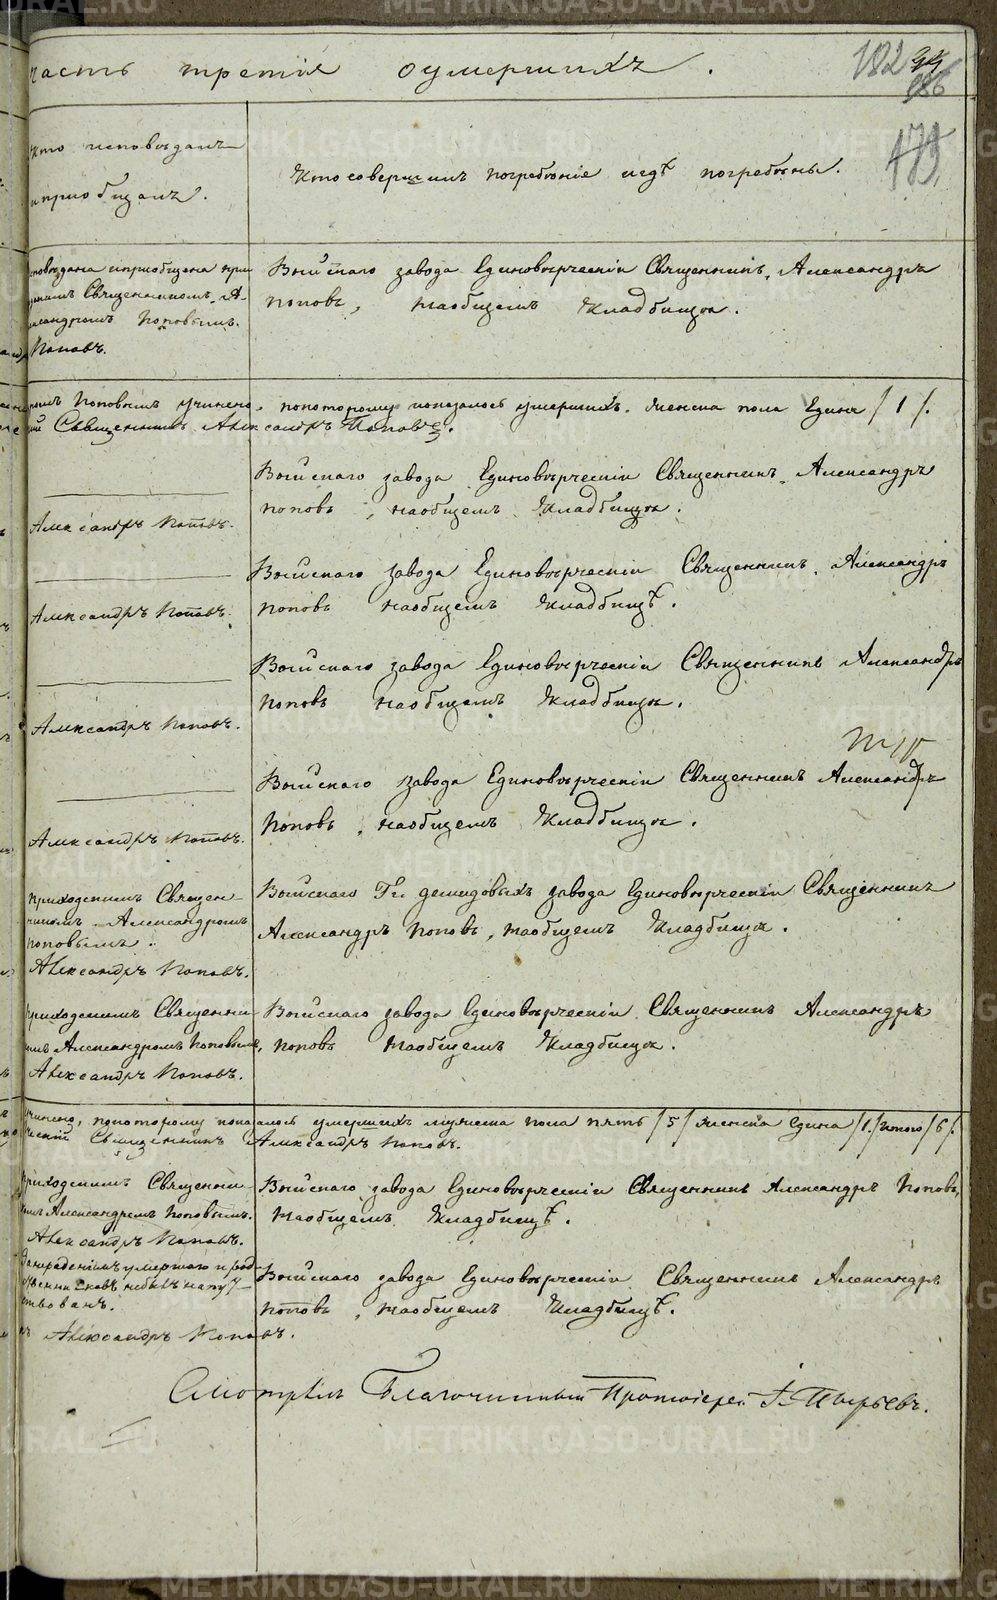 часть третія оумершихъ.
182
179
Кто исповѣдалъ
и пріобщалъ.
Кто совершилъ погребѣніе и гдѣ погребѣны.
исповѣдана и пріобщена при
Священникомъ А-
лександромъ Поповымъ.
Поповъ.
Войскаго завода Единовѣрческій Священникъ Александръ
Поповъ, на общемъ Кладбищѣ.
Поповымъ учинено, по которому показалось умершихъ женска пола Едина /1/.
Священникъ Александръ Поповъ.
Войскаго завода Единовѣрческій Священникъ Александръ
Поповъ, на общемъ Кладбищѣ.
Александръ Поповъ.
Войскаго завода Единовѣрческій Священникъ Александръ
Поповъ на общемъ Кладбищѣ.
Александръ Поповъ.
Войскаго завода Единовѣрческій Священникъ Александръ
Поповъ на общемъ Кладбищѣ.
Александръ Поповъ.
Войскаго завода Единовѣрческій Священникъ Александръ
Поповъ, на общемъ Кладбищѣ.
Александръ Поповъ.
приходскимъ Священ-
никомъ Александромъ
Поповымъ.
Александръ Поповъ.
Войскаго Гг. демидовыхъ завода Единовѣрческій Священникъ
Александръ Поповъ, на общемъ Кладбищѣ.
приходскимъ Священни-
комъ Александромъ Поповымъ,
Александръ Поповъ.
Войскаго завода Единовѣрческій Священникъ Александръ
Поповъ на общемъ Кладбищѣ.
учинено, по которому показалось умершихъ мужеска пола пять /5/ женска едина /1./ итого /6/.
Священникъ Александръ Поповъ.
приходскимъ Священни-
комъ Александромъ Поповымъ.
Александръ Поповъ.
Войскаго завода Единовѣрческій Священникъ Александръ Поповъ,
на общемъ Кладбищѣ.
За нерадѣніемъ умершаго и род-
ственниковъ небылъ напут-
ствованъ.
Александръ Поповъ.
Войскаго завода Единовѣрческій Священникъ Александръ
Поповъ, на общемъ Кладбищѣ.
Смотрѣлъ Благочинный Протоіерей І. Пырьевъ.